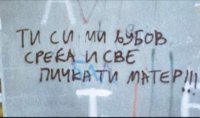 ТИ СИ МИ ЉУБОВ
СРЕЌА И СВЕ
ПИЧКА ТИ МАТЕР!!!